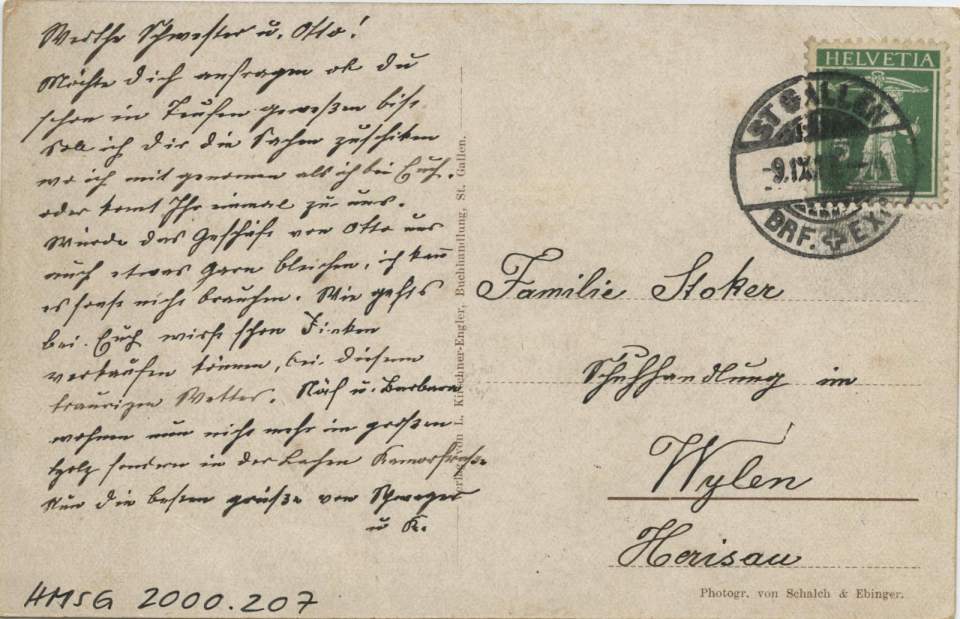 Werthe Schwester u. Otto!
Möchte dich anfragen ob du
schon in Teufen gewesen bist
Soll ich dir die Sachen zuschiken
wo ich mit genomen als ich bei Euch.
oder komt Ihr einmal zu uns.
Würde das Geschäft von Otto uns
auch etwas Garn bleichen, ich kann
es sonst nicht brauchen. Wie gehts
bei Euch wirst schon Finken
verkaufen können, bei diesem
traurigen Wetter. Näf u. Barbara
wohnen nun nicht mehr im großen
Holz sondern in der Lachen
Nun die besten grüße von Schwager
u K.
HELVETIA
ST GALLEN
-9.IX.
BRF. EXP.
Familie Stoker
Schuhhandlung im
Wylen
Herisau
Verlag von L. Kirschner-Engler, Buchhandlung, St. Gallen.
Photogr. von Schalch & Ebinger.
HMSG 2000.207